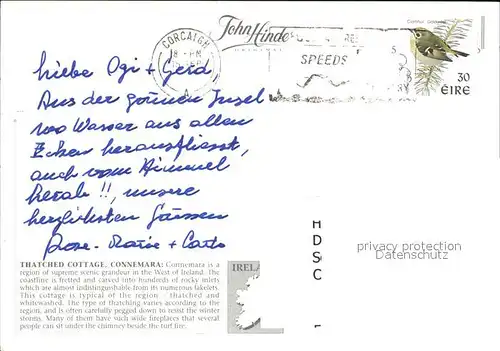 CORCAIGH
8 - PM
SEP
A
John Hinde
SPEEDS
30
ÉIRE
Liebe Ogi + Gerd
Aus der grünen Insel
wo Wasser aus allen
Ecken herausfliesst,
auch vom Himmel
herab!!, unsere
herzlichsten Grüssen
Rose-Marie + Carlo
THATCHED COTTAGE, CONNEMARA: Connemara is a
region of supreme scenic grandeur in the West of Ireland. The
coastline is fretted and carved into hundreds of rocky inlets
which are almost indistinguishable from its numerous lakelets.
This cottage is typical of the region - thatched and
whitewashed. The type of thatching varies according to the
region, and is often carefully pegged down to resist the winter
storms. Many of them have such wide fireplaces that several
people can sit under the chimney beside the turf fire.
IREL
H
D
S
C
privacy protection
for Oldthing